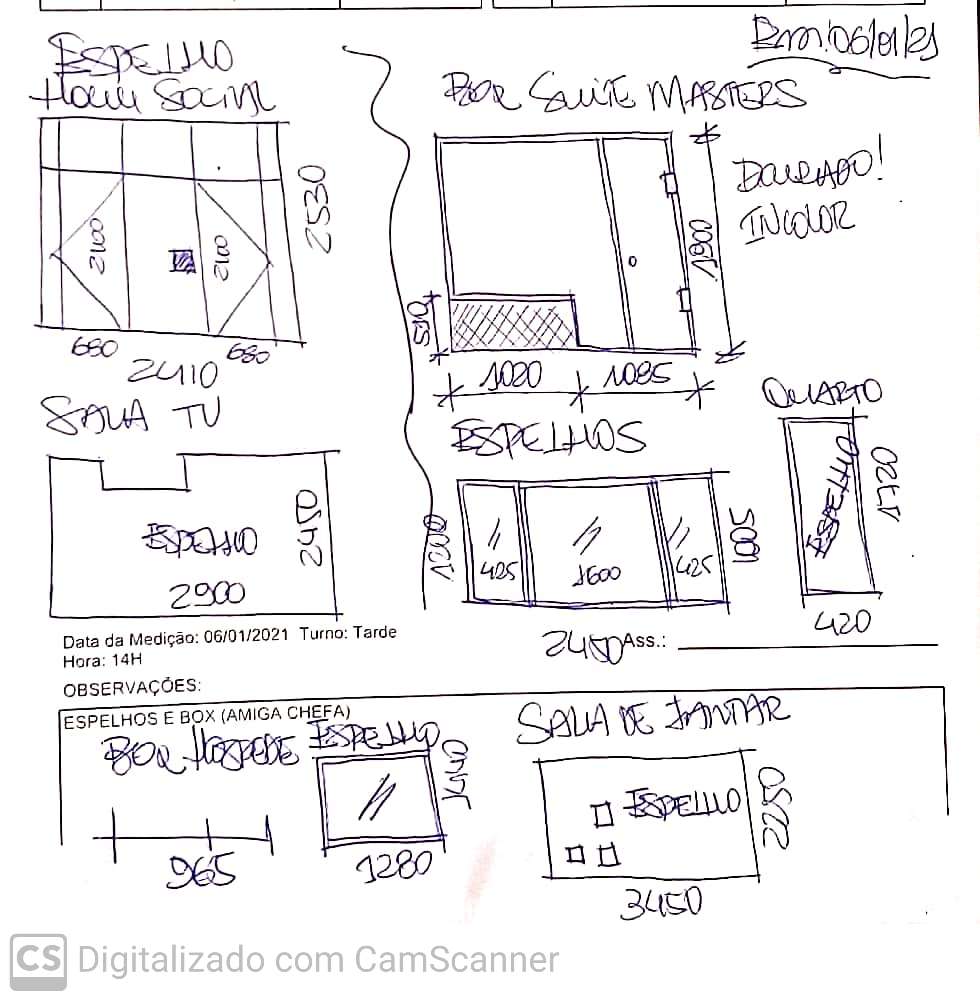 Em: 06/01/21
ESPELHO
HALL SOCIAL
2100
2100
2530
680
680
2410
BOX SUITE MASTERS
DOURADO!
INCOLOR
1900
510
1020
1085
SALA TV
ESPELHO
2450
2900
ESPELHOS
1200
425
1600
425
1005
2450
QUARTO
ESPELHO
420
Data da Medição: 06/01/2021 Turno: Tarde
Hora: 14H
Ass.:
OBSERVAÇÕES:
ESPELHOS E BOX (AMIGA CHEFA)
BOX HOSPEDE
965
ESPELHO
1440
1280
SALA DE JANTAR
ESPELHO
2250
3450
CS Digitalizado com CamScanner